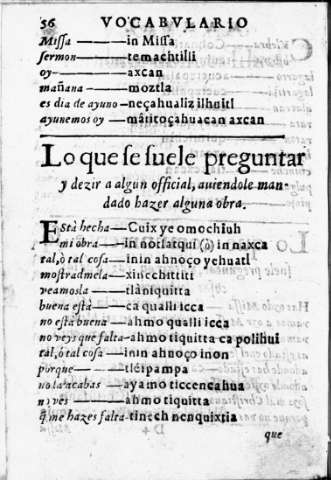 56 VOCABVLARIO
Missa — in Missa
sermon — temachtilli
oy — axcan
mañana — moztla
es dia de ayuno — neçahualiz ilhuitl
ayunemos oy — mâtitoçahuacan axcan
Lo que se suele preguntar
y dezir a algun official, auiendole man-
dado hazer alguna obra.
Està hecha — Cuix ye omochiuh
mi obra — in notlatqui (ò) in naxca
tal, ò tal cosa — inin ahnoço yehuatl
mostradmela — xinechtititi
veamosla — tlâniquitta
buena està — ca qualli icca
no està buena — ahmo qualli icca
no veys que falta — ahmo tiquitta ca polihui
tal, ò tal cosa — inin ahnoço inon
porque — tleipampa
no la acabas — ayamo ticcencahua
no ves — ahmo tiquitta
q̃ me hazes falta — tinech nenquixtia
que